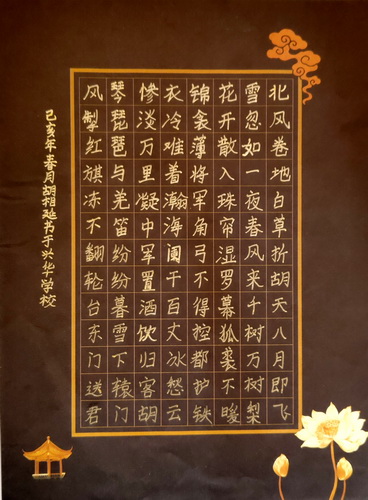 北风卷地白草折胡天八月即飞
雪忽如一夜春风来千树万树梨
花开散入珠帘湿罗幕狐裘不暖
锦衾薄将军角弓不得控都护铁
衣冷难着瀚海阑干百丈冰愁云
惨淡万里凝中军置酒饮归客胡
琴琵琶与羌笛纷纷暮雪下辕门
风掣红旗冻不翻轮台东门送君
己亥年春月胡相书于兴华学校